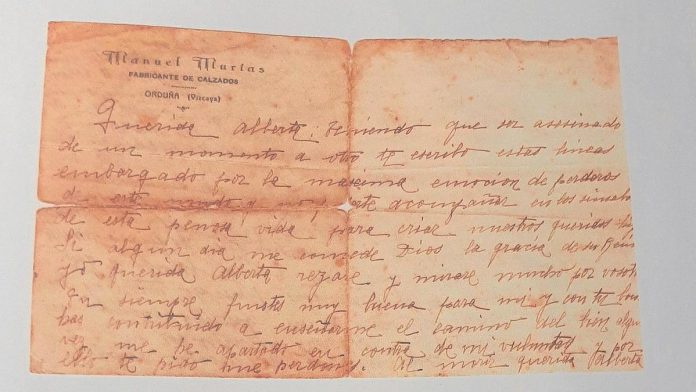 Manuel Murias
FABRICANTE DE CALZADOS
ORDUÑA (Vizcaya)
Querida Alberta: teniendo que ser asesinado
de un momento a otro te escribo estas lineas
embargado por la maxima emocion de perderos
de este mundo y no poderte acompañar en los sinsabo
de esta penosa vida para criar nuestros queridos
Si algun dia me concede Dios la gracia de su Reino
yo querida Alberta rezare y mirare mucho por vosotros
siempre fuistes muy buena para mi y con tu
has contribuido a enseñarme el camino del bien algu
vez me he apartado en contra de mi voluntad y por
ello te pido me perdones. Al morir querida Alberta